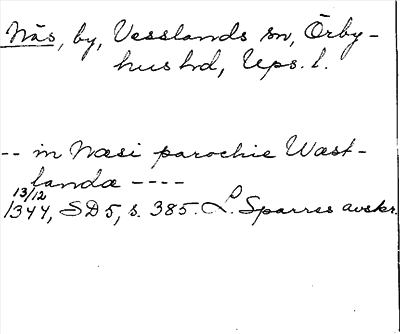 Näs, by, Vesslands sn, Örby-
hus hd, Ups. l.
-- in Næsi parochie Wæst-
landa ----
13/12
1344, SD 5, s. 385. L. Sparres avskr.